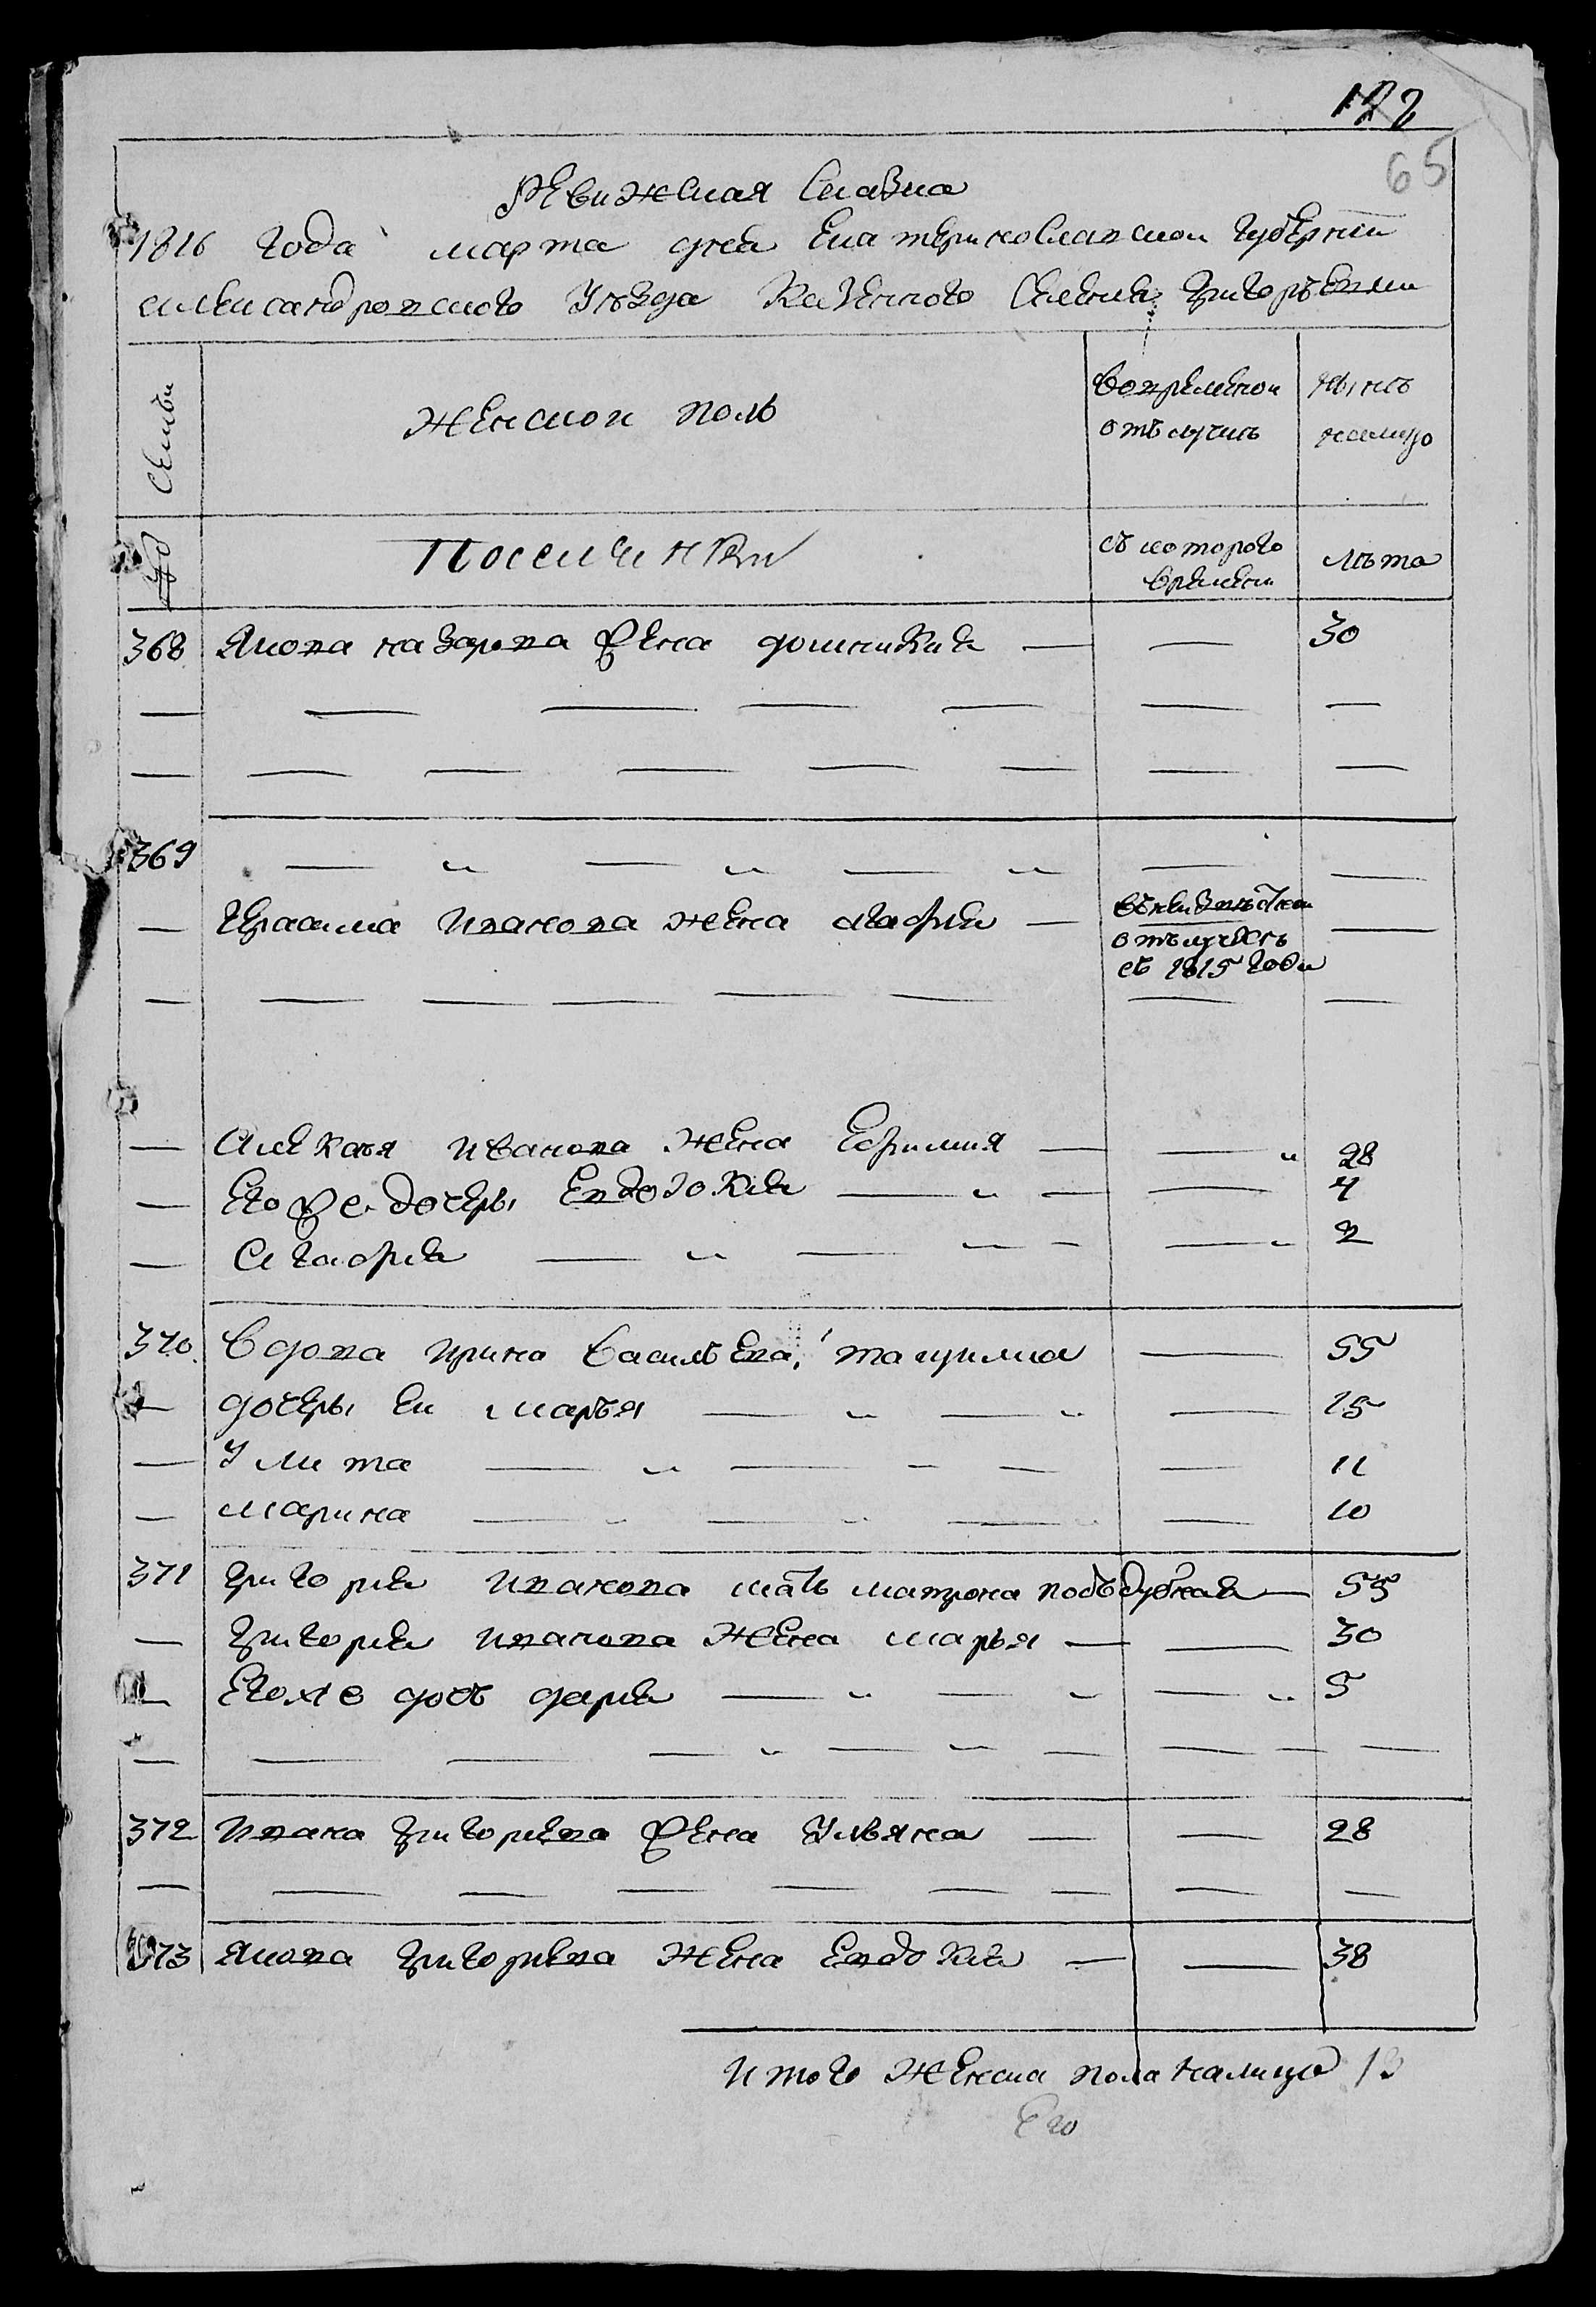 122
65
Ревижская Сказка
1816 года марта дня Екатеринославской Губернии
александровского Уезда Казенного Селения Григорьевки
Семьи
Женской полъ
Вовременой отълучкъ
Нынъ налицо
№
Поселянки
съ которого времени
лъта
368 Якова назарова жена домникия — — 30
369
— Герасима иванова жена агафия — отълучкъ съ 1815 года —
— Алексъя иванова жена Ефимия — — 28
— Егоже дочеры Евдокия — — 4
— Агафия — — 2
370 вдова ирина васильева, — 55
— дочеры еи марья — — 15
— Улита — — 11
— марина — — 10
371 григория иванова мать матрона — 55
— григория иванова жена марья — — 30
— Егоже дочь дария — — 5
372 ивана григориева жена Ульяна — — 28
373 Якова григориева жена Евдокия — — 38
итого женска пола налицо 13
Его